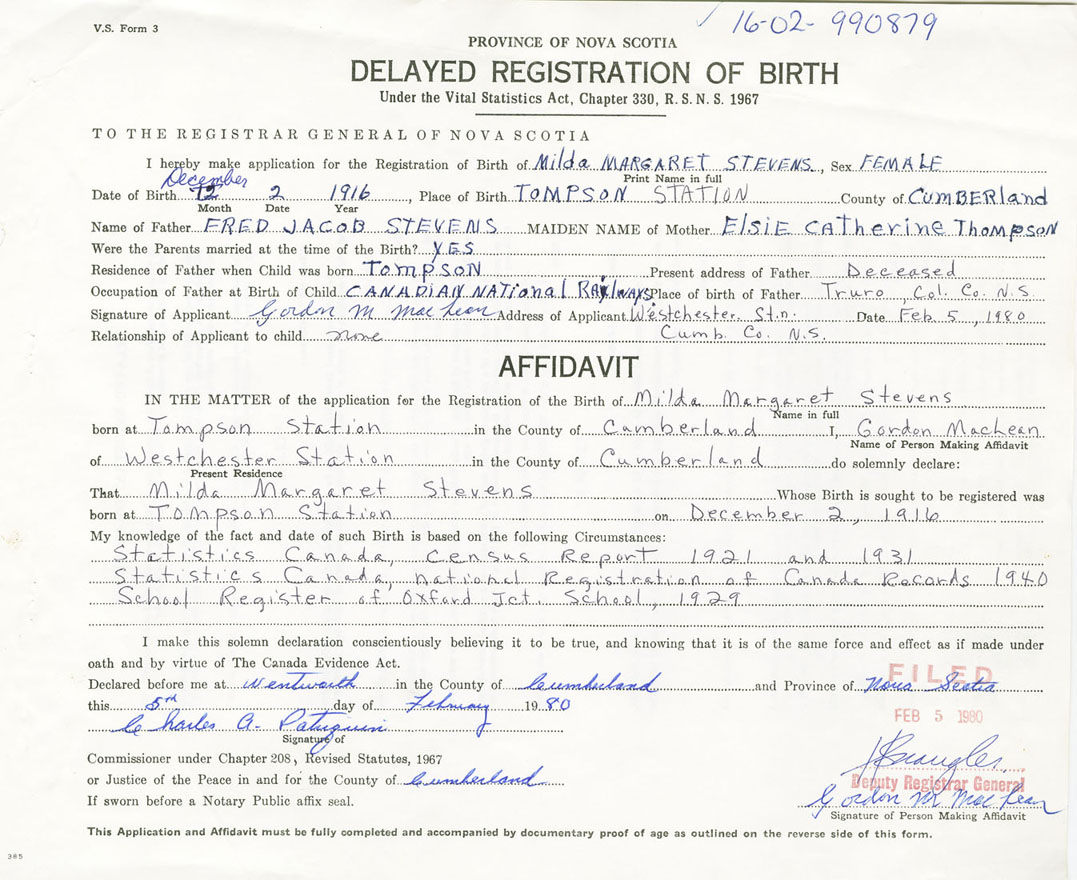 V.S. Form 3
✓ 16-02-990879
PROVINCE OF NOVA SCOTIA
DELAYED REGISTRATION OF BIRTH
Under the Vital Statistics Act, Chapter 330, R.S.N.S. 1967
TO THE REGISTRAR GENERAL OF NOVA SCOTIA
I hereby make application for the Registration of Birth of Milda MARGARET STEVENS, Sex FEMALE
Print Name in full
December
Date of Birth 12 2 1916, Place of Birth TOMPSON STATION County of CUMBERland
Month Date Year
Name of Father FRED JACOB STEVENS MAIDEN NAME of Mother ElsiE CatherinE Thompson
Were the Parents married at the time of the Birth? YES
Residence of Father when Child was born Tompson Present address of Father Deceased
Occupation of Father at Birth of Child CANADIAN National Railways Place of birth of Father Truro, Col. Co. N.S.
Signature of Applicant Gordon M MacLean Address of Applicant Westchester Stn. Date Feb. 5, 1980
Relationship of Applicant to child none Cumb. Co. N.S.
AFFIDAVIT
IN THE MATTER of the application for the Registration of the Birth of Milda Margaret Stevens
Name in full
born at Tompson Station in the County of Cumberland I, Gordon MacLean
Name of Person Making Affidavit
of Westchester Station in the County of Cumberland do solemnly declare:
Present Residence
That Milda Margaret Stevens Whose Birth is sought to be registered was
born at Tompson Station on December 2, 1916
My knowledge of the fact and date of such Birth is based on the following Circumstances:
Statistics Canada, Census Report 1921 and 1931
Statistics Canada, National Registration of Canada Records 1940
School Register of Oxford Jct. School, 1929
I make this solemn declaration conscientiously believing it to be true, and knowing that it is of the same force and effect as if made under
oath and by virtue of The Canada Evidence Act.
FILED
Declared before me at Wentworth in the County of Cumberland and Province of Nova Scotia
this 5th day of February 1980
FEB 5 1980
Charles A. Patriquin
Signature of
Commissioner under Chapter 208, Revised Statutes, 1967
or Justice of the Peace in and for the County of Cumberland
Deputy Registrar General
If sworn before a Notary Public affix seal.
Gordon M MacLean
Signature of Person Making Affidavit
This Application and Affidavit must be fully completed and accompanied by documentary proof of age as outlined on the reverse side of this form.
385